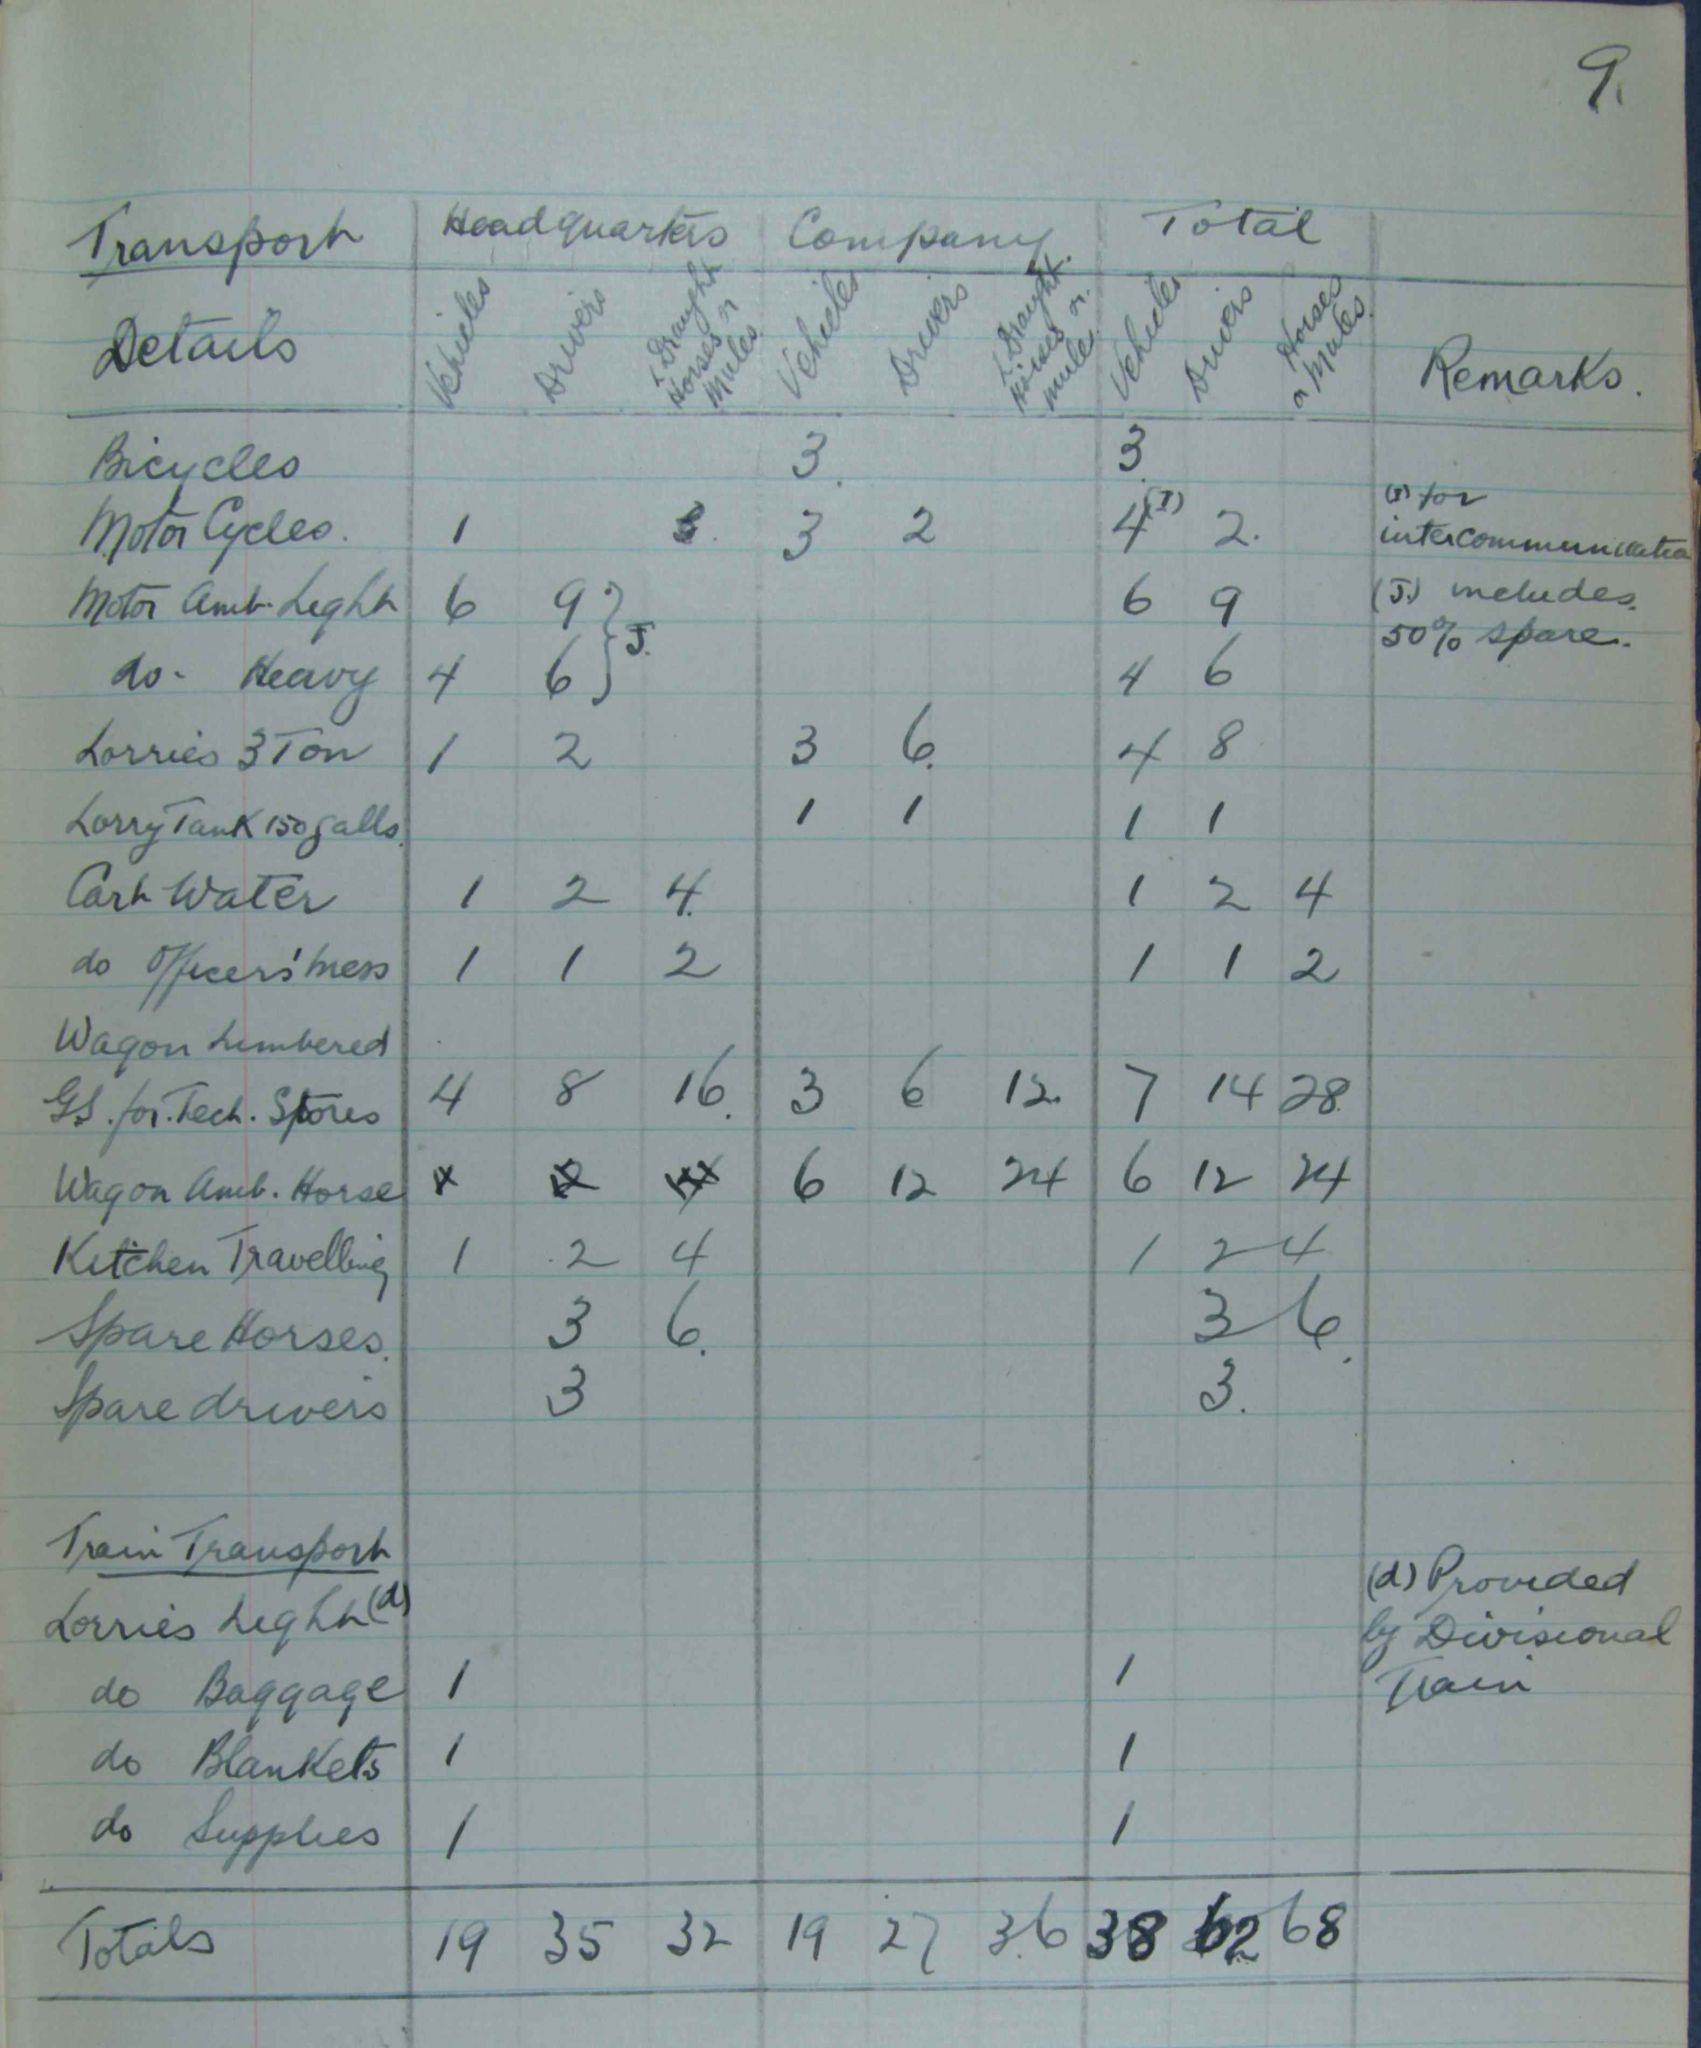 9.
Transport Headquarters Company Total
Details Vehicles Drivers L Draught Horses or Mules Vehicles Drivers L Draught Horses or mules Vehicles Drivers Horses or Mules Remarks.
Bicycles 3. 3.
Motor Cycles. 1 3 2 4(I) 2. (I) for
intercommunication
Motor Amb. Light 6 9 } J. 6 9 (J.) includes
50% spare.
do - Heavy 4 6 4 6
Lorries 3 Ton 1 2 3 6. 4 8
Lorry Tank 150 galls. 1 1 1 1
Cart Water 1 2 4. 1 2 4
do Officers' mess 1 1 2 1 1 2
Wagon Limbered
G.S. for. Tech. Stores 4 8 16. 3 6 12. 7 14 28.
Wagon Amb. Horse 6 12 24 6 12 24
Kitchen Travelling 1 2 4 1 2 4
Spare Horses. 3 6. 3 6.
Spare drivers 3 3.
Train Transport
Lorries Light (d) (d) Provided
by Divisional
do Baggage 1 1 Train
do Blankets 1 1
do Supplies 1 1
Totals 19 35 32 19 27 36 38 62 68